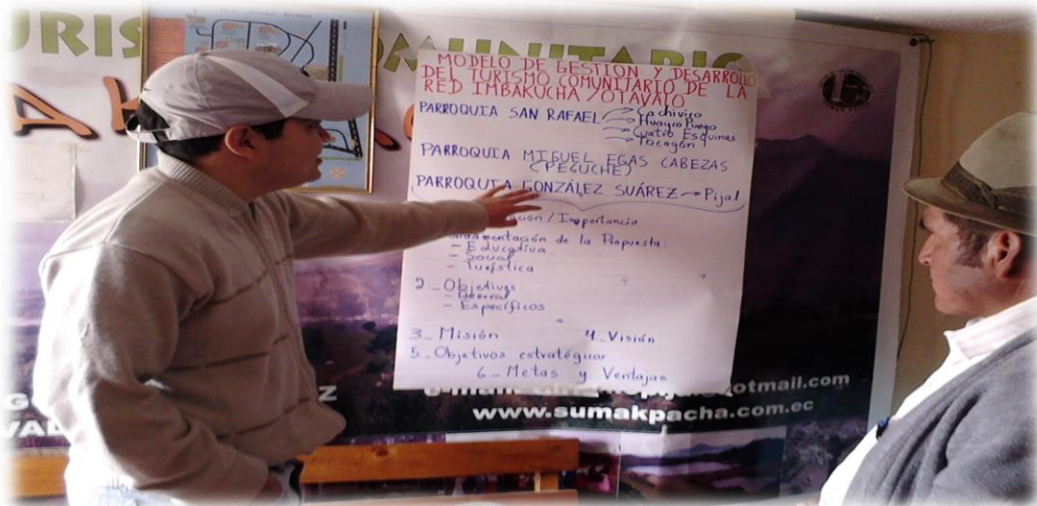 TURISMO COMUNITARIO
MODELO DE GESTION Y DESARROLLO
DEL TURISMO COMUNITARIO DE LA
RED IMBAKUCHA / OTAVALO
PARROQUIA SAN RAFAEL
Cachiviro
Huayco Pungo
Cuatro Esquinas
Tocagón
PARROQUIA MIGUEL EGAS CABEZAS
(PEGUCHE)
PARROQUIA GONZÁLEZ SUÁREZ → Pijal
/ Importancia
de la Propuesta:
- Educativa
- Social
- Turística
2.- Objetivos:
- General
- Específicos
3.- Misión 4.- Visión
5.- Objetivos estratégicos
6.- Metas y Ventajas
otmail.com
www.sumakpacha.com.ec